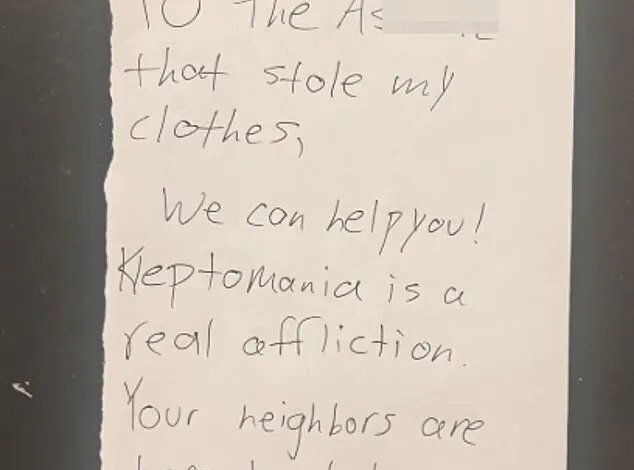 To The
that stole my
clothes,
We can help you!
Kleptomania is a
real affliction.
Your neighbors are